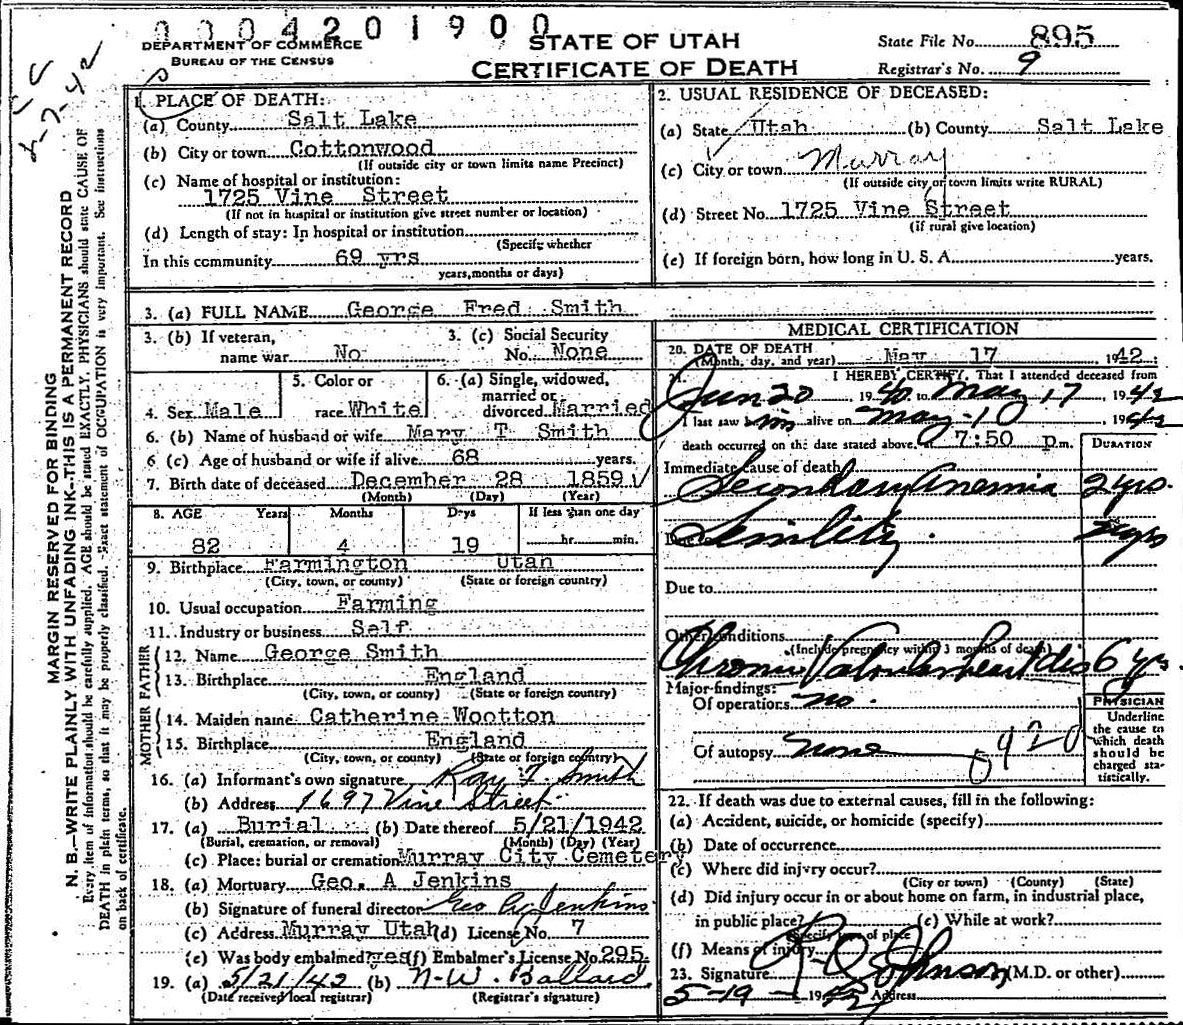 0 0 0 4 2 0 1 9 0 0
DEPARTMENT OF COMMERCE
BUREAU OF THE CENSUS
STATE OF UTAH
CERTIFICATE OF DEATH
State File No. 895
Registrar's No. 9
MARGIN RESERVED FOR BINDING
N. B.—WRITE PLAINLY WITH UNFADING INK—THIS IS A PERMANENT RECORD
Every item of information should be carefully supplied. AGE should be stated EXACTLY. PHYSICIANS should state CAUSE OF
DEATH in plain terms, so that it may be properly classified. Exact statement of OCCUPATION is very important. See instructions
on back of certificate.
1. PLACE OF DEATH:
(a) County Salt Lake
(b) City or town Cottonwood
(If outside city or town limits name Precinct)
(c) Name of hospital or institution:
1725 Vine Street
(If not in hospital or institution give street number or location)
(d) Length of stay: In hospital or institution
(Specify whether
In this community 69 yrs
years, months or days)
2. USUAL RESIDENCE OF DECEASED:
(a) State Utah (b) County Salt Lake
(c) City or town Murray
(If outside city or town limits write RURAL)
(d) Street No. 1725 Vine Street
(If rural give location)
(e) If foreign born, how long in U. S. A. years.
3. (a) FULL NAME George Fred Smith
3. (b) If veteran, name war No
3. (c) Social Security No. None
4. Sex Male
5. Color or race White
6. (a) Single, widowed, married or divorced Married
6. (b) Name of husband or wife Mary T Smith
6 (c) Age of husband or wife if alive 68 years.
7. Birth date of deceased December 28 1859
(Month) (Day) (Year)
8. AGE Years Months Days If less than one day
82 4 19 hr. min.
9. Birthplace Farmington Utah
(City, town, or county) (State or foreign country)
10. Usual occupation Farming
11. Industry or business Self
FATHER
12. Name George Smith
13. Birthplace England
(City, town, or county) (State or foreign country)
MOTHER
14. Maiden name Catherine Wootton
15. Birthplace England
(City, town, or county) (State or foreign country)
16. (a) Informant's own signature Ray T. Smith
(b) Address 1697 Vine Street
17. (a) Burial (b) Date thereof 5/21/1942
(Burial, cremation, or removal) (Month) (Day) (Year)
(c) Place: burial or cremation Murray City Cemetery
18. (a) Mortuary Geo. A Jenkins
(b) Signature of funeral director Geo A Jenkins
(c) Address Murray Utah (d) License No. 7
(e) Was body embalmed? yes (f) Embalmer's License No. 295
19. (a) 5/21/42 (b) N. W. Ballard
(Date received local registrar) (Registrar's signature)
MEDICAL CERTIFICATION
20. DATE OF DEATH
(Month, day, and year) May 17 1942
21. I HEREBY CERTIFY, That I attended deceased from
Jun 20 1940 to May 17 1942
I last saw him alive on May-10 1942
death occurred on the date stated above, at 7:50 p.m.
DURATION
Immediate cause of death
Secondary Anemia 2 yrs.
Due to Senility
Due to
Other conditions
(Include pregnancy within 3 months of death)
Chronic Valvular heart dis 6 yrs
Major findings:
Of operations no.
Of autopsy none
PHYSICIAN
Underline
the cause to
which death
should be
charged sta-
tistically.
22. If death was due to external causes, fill in the following:
(a) Accident, suicide, or homicide (specify)
(b) Date of occurrence
(c) Where did injury occur?
(City or town) (County) (State)
(d) Did injury occur in or about home on farm, in industrial place,
in public place? (e) While at work?
(Specify type of place
(f) Means of injury
23. Signature Johnson (M.D. or other)
5-19-1942 Address